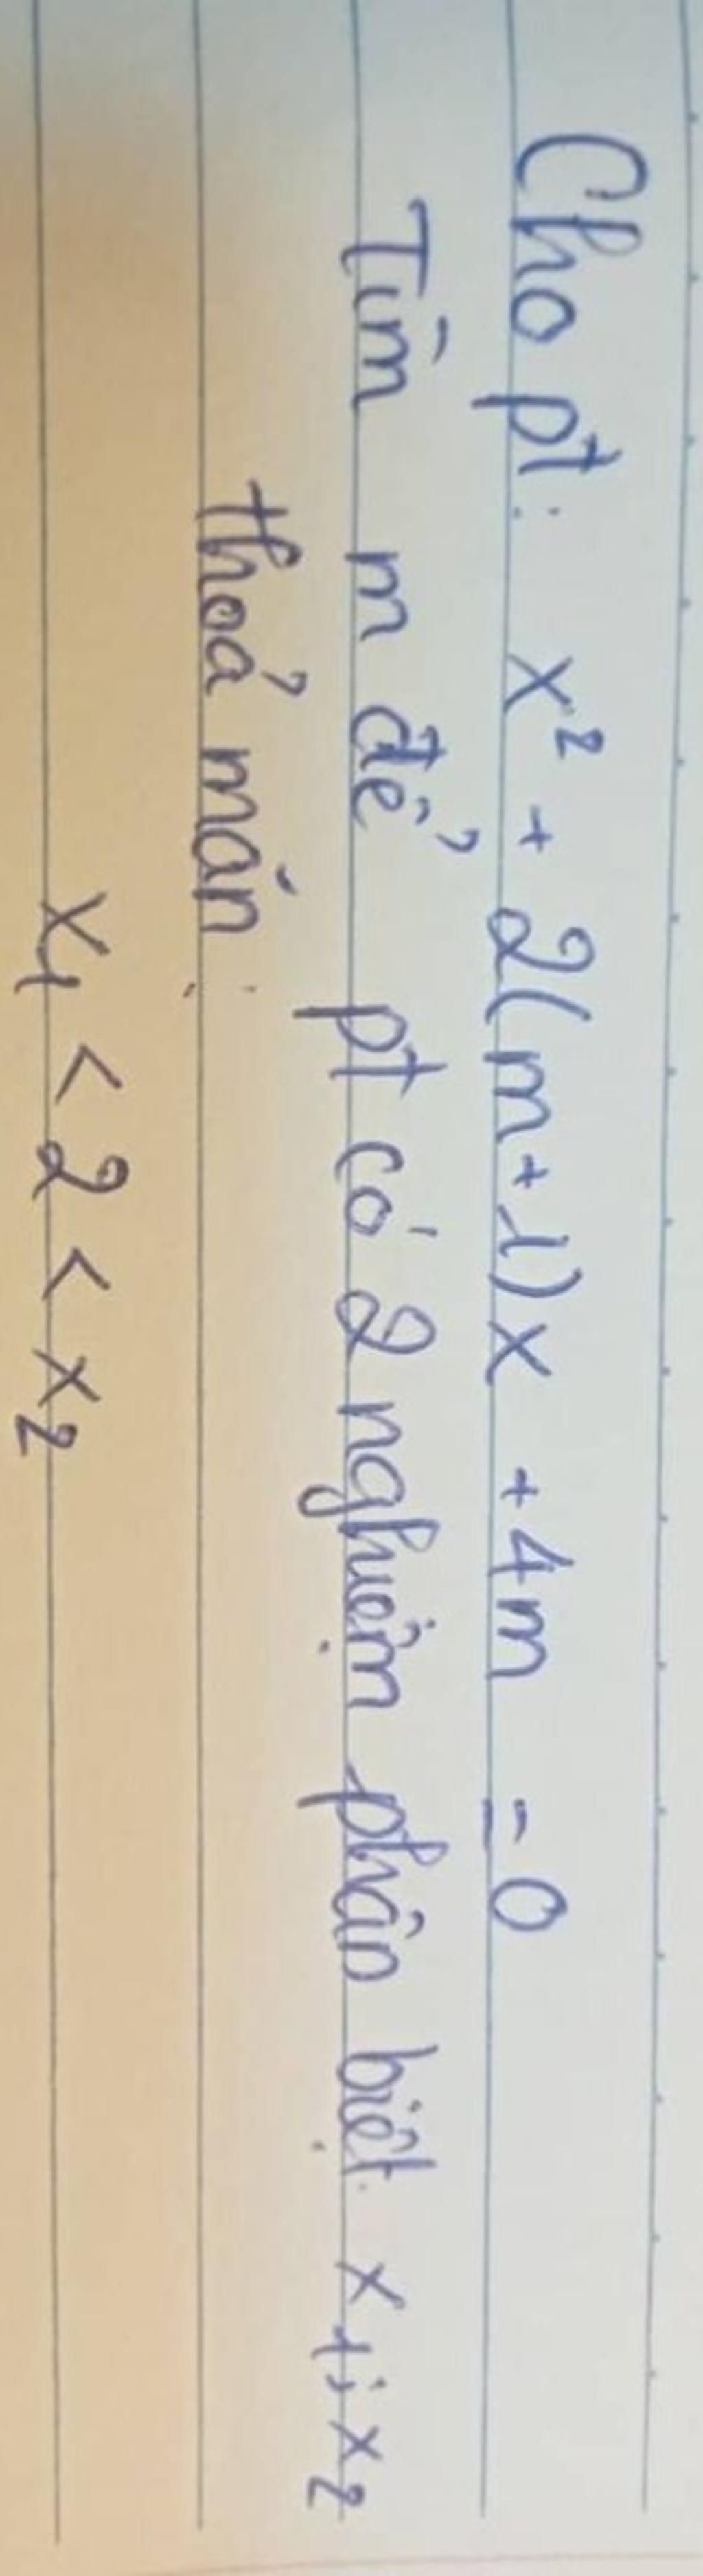 Cho pt: x² + 2(m+1)x + 4m = 0
Tìm m để pt có 2 nghiệm phân biệt x₁; x₂
thoả mãn:
x₁ < 2 < x₂